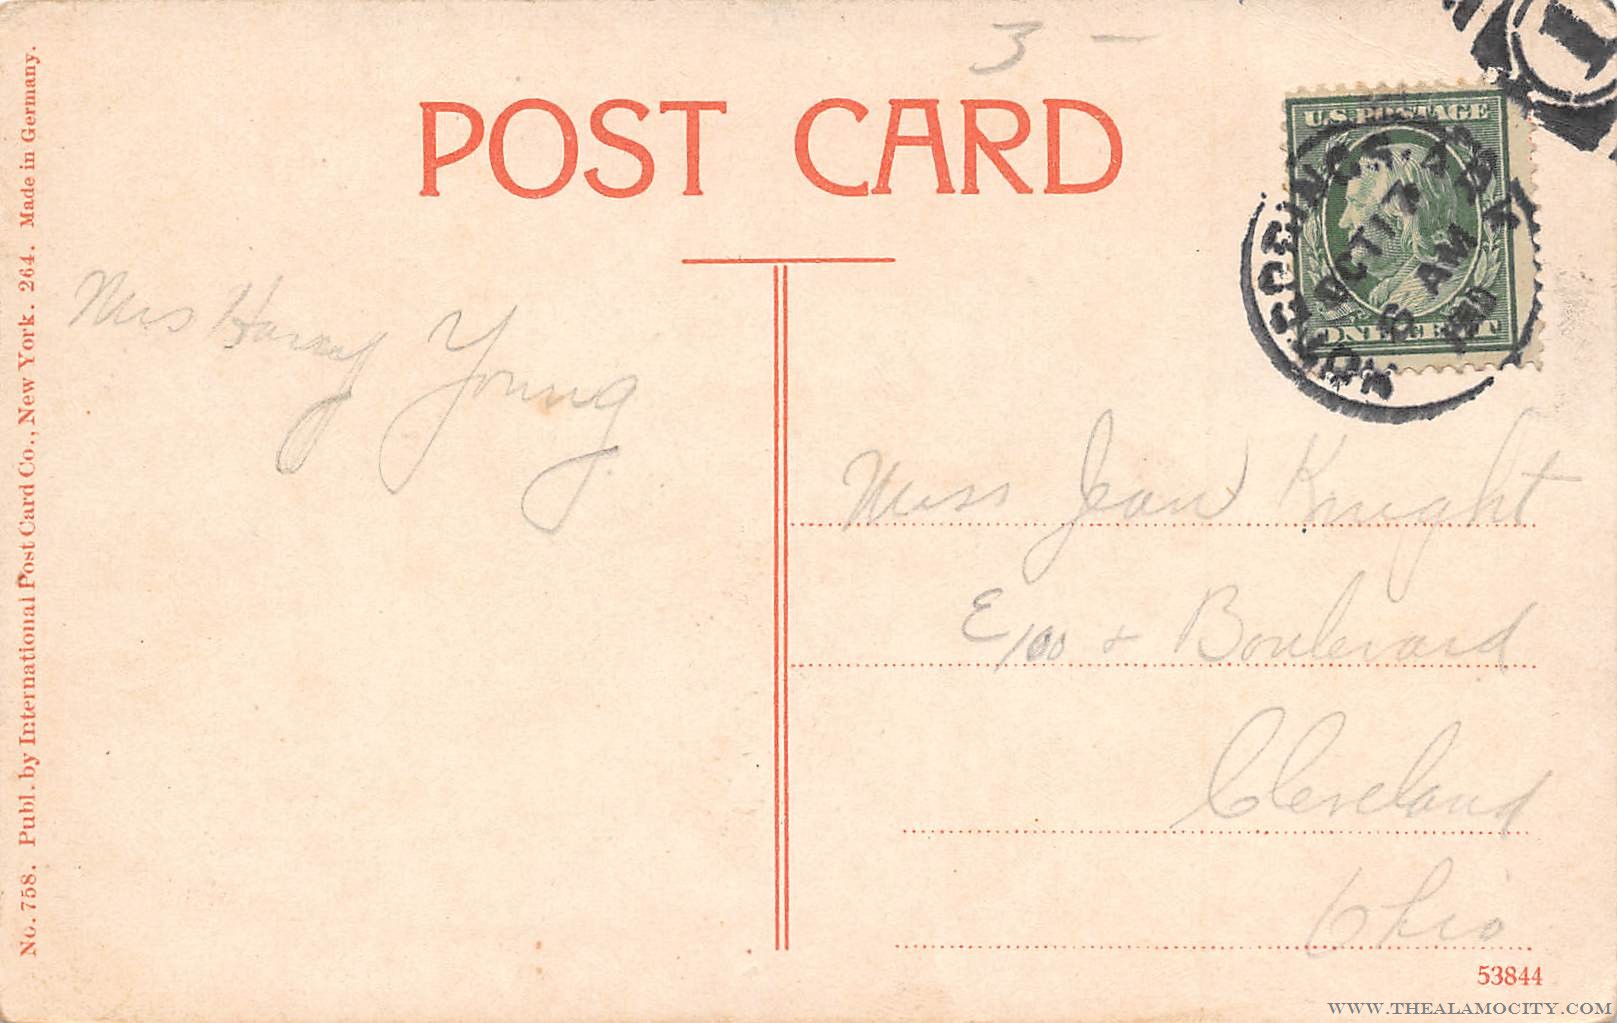 3 –
POST CARD
1
U.S. POSTAGE
ONE CENT
OCT 17
6 AM
Mrs Harry Young
Miss Jean Knight
E 100 + Boulevard
Cleveland
Ohio
53844
No. 758. Publ. by International Post Card Co., New York. 264. Made in Germany.
WWW.THEALAMOCITY.COM